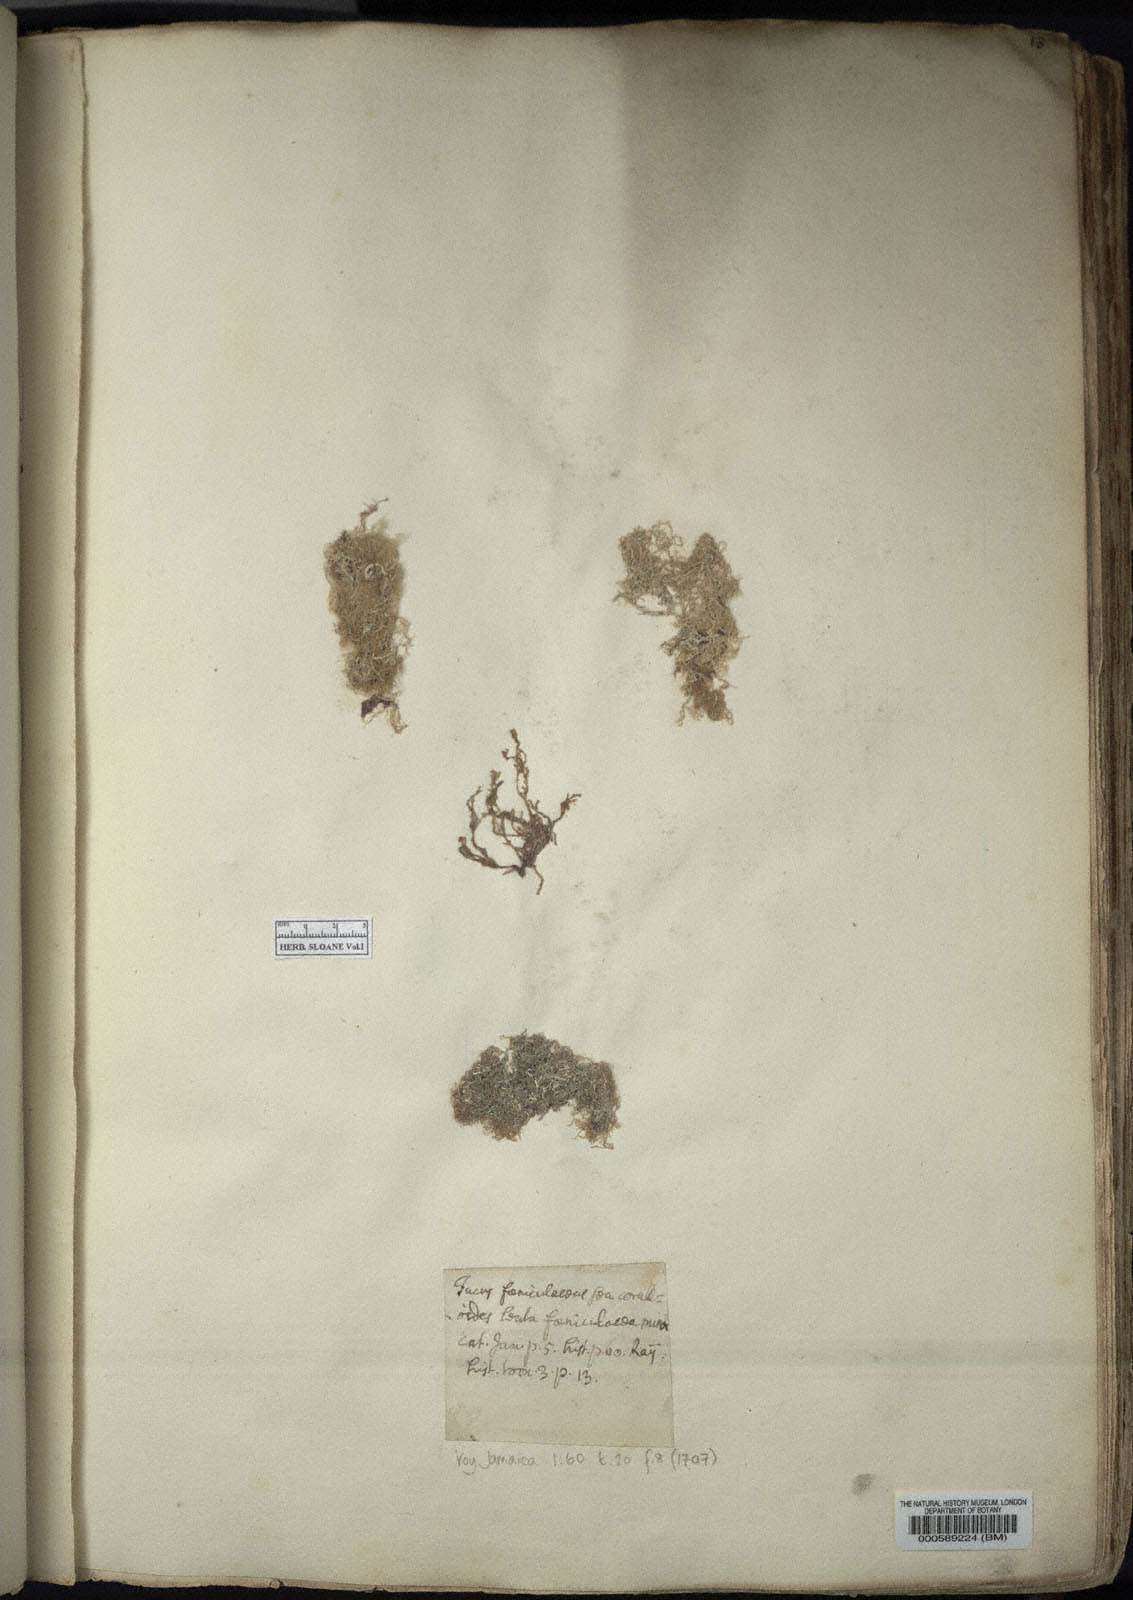 13
mm 1 2 3
HERB. SLOANE Vol.1
Fucus fæniculaceus seu corall=
oides lenta fæniculacea minor
cat. Jam. p. 5. hist. p. 60. Raij.
hist. tom. 3. p. 13.
Voy. Jamaica 1:60 t.20 f.8 (1707)
THE NATURAL HISTORY MUSEUM, LONDON
DEPARTMENT OF BOTANY
000589224 (BM)